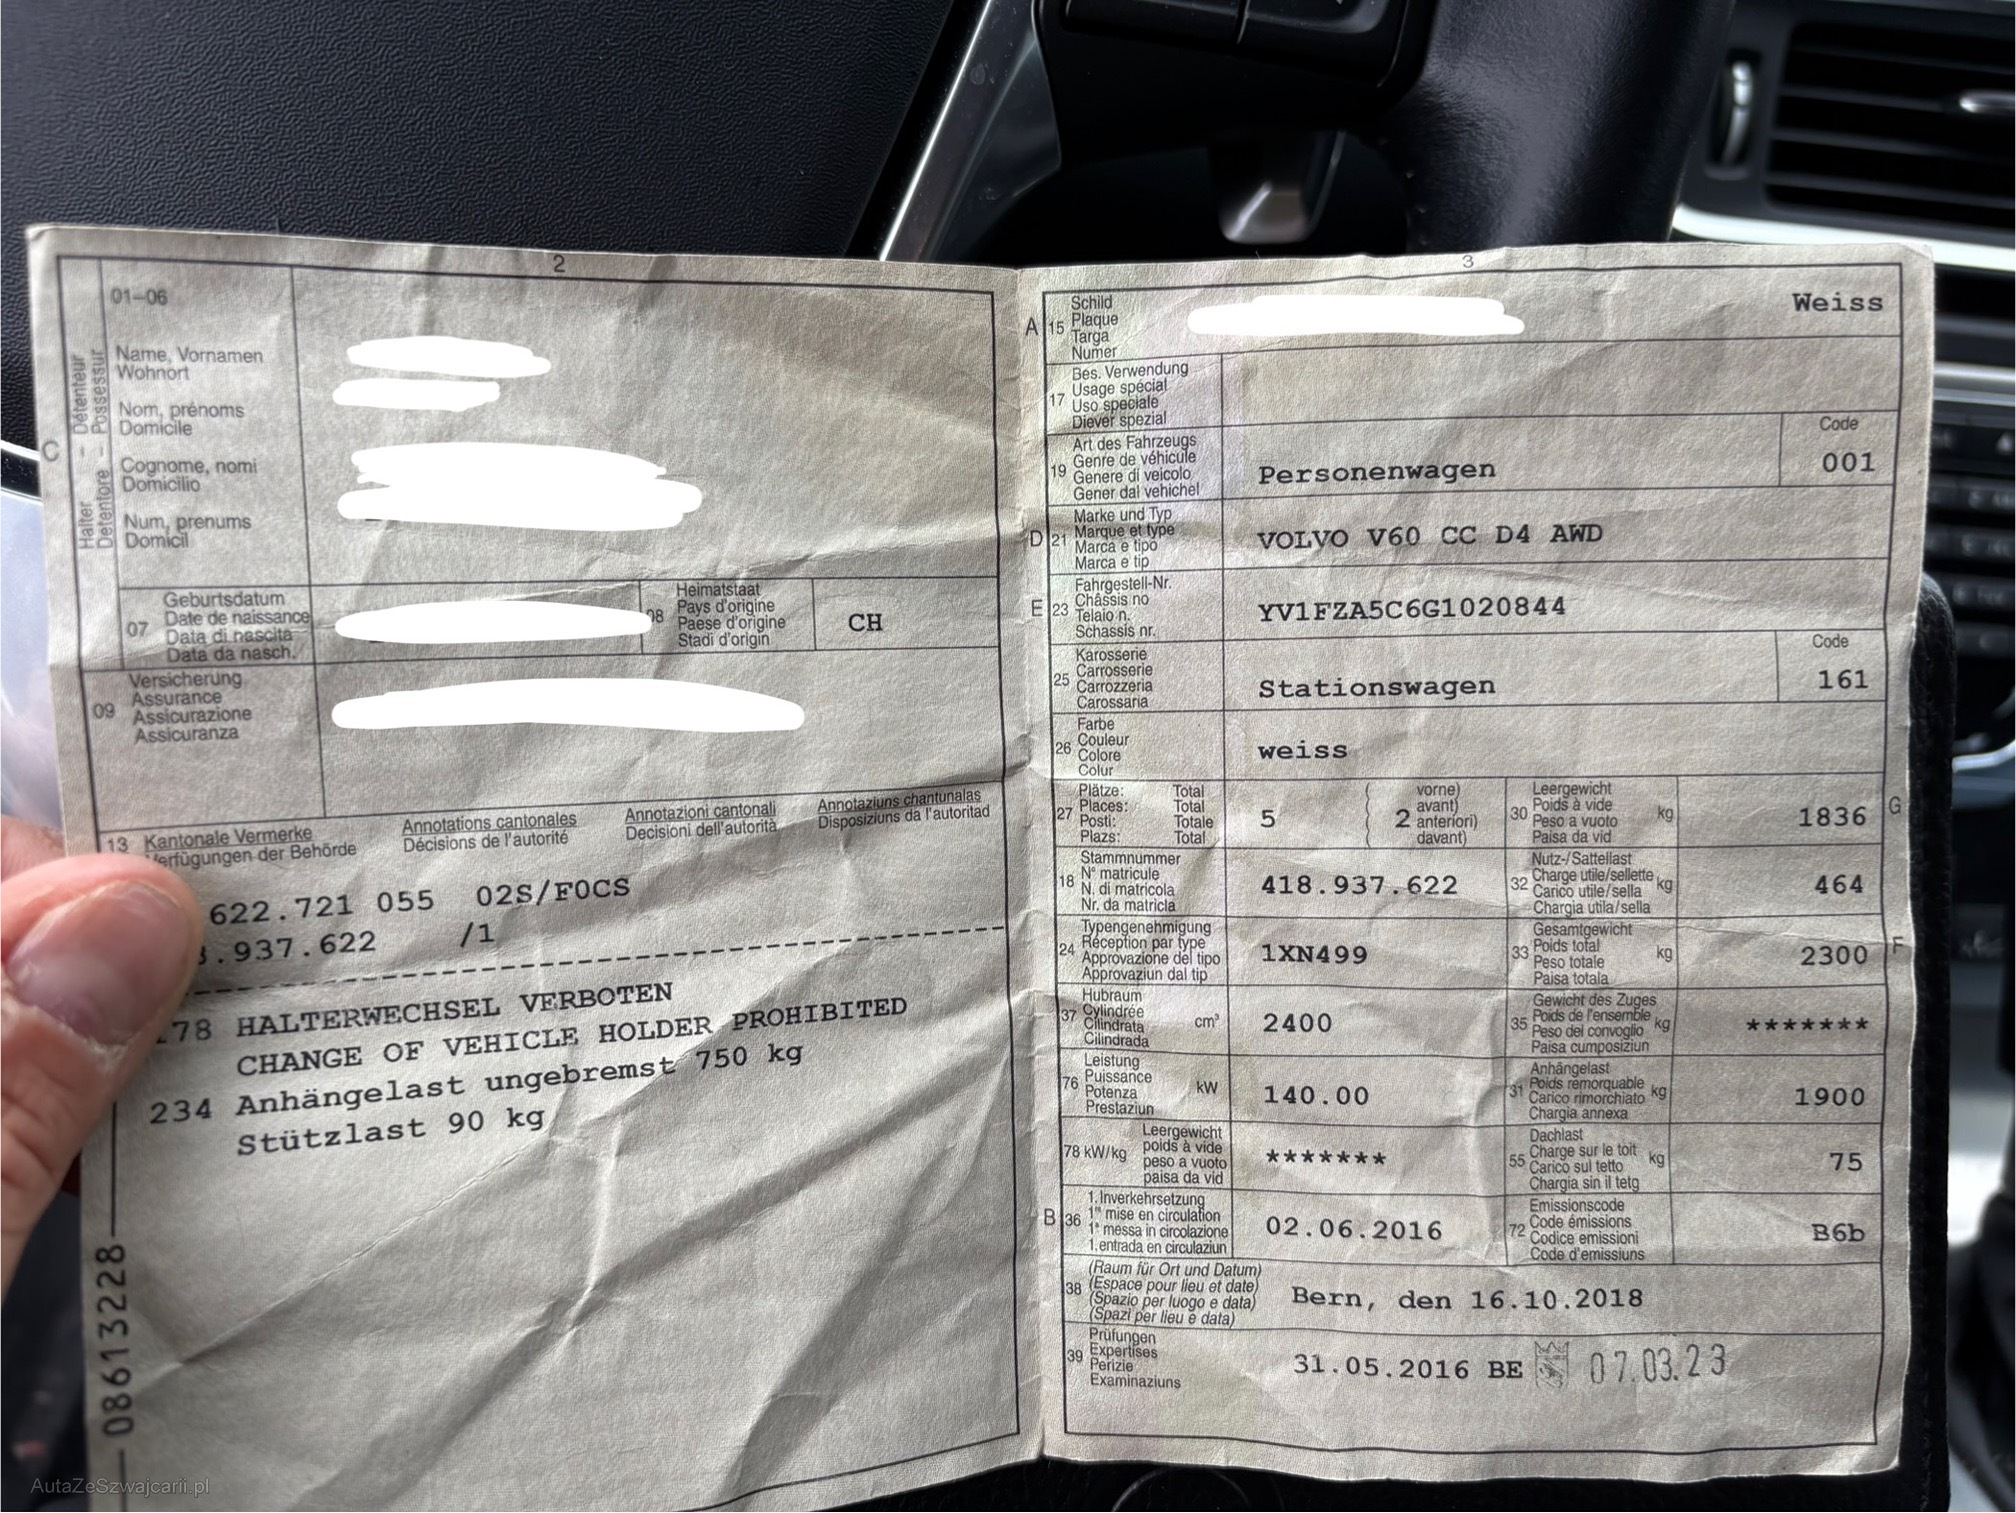 2
01–06
Halter – Détenteur
Detentore – Possessur
C
Name, Vornamen
Wohnort
Nom, prénoms
Domicile
Cognome, nomi
Domicilio
Num, prenums
Domicil
07
Geburtsdatum
Date de naissance
Data di nascita
Data da nasch.
08
Heimatstaat
Pays d'origine
Paese d'origine
Stadi d'origin
CH
09
Versicherung
Assurance
Assicurazione
Assicuranza
13 Kantonale Vermerke
Verfügungen der Behörde
Annotations cantonales
Décisions de l'autorité
Annotazioni cantonali
Decisioni dell'autorità
Annotaziuns chantunalas
Disposiziuns da l'autoritad
622.721 055 02S/F0CS
.937.622 /1
78 HALTERWECHSEL VERBOTEN
CHANGE OF VEHICLE HOLDER PROHIBITED
234 Anhängelast ungebremst 750 kg
Stützlast 90 kg
08613228
3
A 15
Schild
Plaque
Targa
Numer
Weiss
17
Bes. Verwendung
Usage spécial
Uso speciale
Diever spezial
19
Art des Fahrzeugs
Genre de véhicule
Genere di veicolo
Gener dal vehichel
Personenwagen
Code
001
D 21
Marke und Typ
Marque et type
Marca e tipo
Marca e tip
VOLVO V60 CC D4 AWD
E 23
Fahrgestell-Nr.
Châssis no
Telaio n.
Schassis nr.
YV1FZA5C6G1020844
25
Karosserie
Carrosserie
Carrozzeria
Carossaria
Stationswagen
Code
161
26
Farbe
Couleur
Colore
Colur
weiss
27
Plätze: Total
Places: Total
Posti: Totale
Plazs: Total
5
2
vorne)
avant)
anteriori)
davant)
30
Leergewicht
Poids à vide
Peso a vuoto
Paisa da vid
kg
1836
G
18
Stammnummer
N° matricule
N. di matricola
Nr. da matricla
418.937.622
32
Nutz-/Sattellast
Charge utile/sellette
Carico utile/sella
Chargia utila/sella
kg
464
24
Typengenehmigung
Réception par type
Approvazione del tipo
Approvaziun dal tip
1XN499
33
Gesamtgewicht
Poids total
Peso totale
Paisa totala
kg
2300
F
37
Hubraum
Cylindrée
Cilindrata
Cilindrada
cm³
2400
35
Gewicht des Zuges
Poids de l'ensemble
Peso del convoglio
Paisa cumposiziun
kg
*******
76
Leistung
Puissance
Potenza
Prestaziun
kW
140.00
31
Anhängelast
Poids remorquable
Carico rimorchiato
Chargia annexa
kg
1900
78 kW/kg
Leergewicht
poids à vide
peso a vuoto
paisa da vid
*******
55
Dachlast
Charge sur le toit
Carico sul tetto
Chargia sin il tetg
kg
75
B 36
1. Inverkehrsetzung
1re mise en circulation
1a messa in circolazione
1. entrada en circulaziun
02.06.2016
72
Emissionscode
Code émissions
Codice emissioni
Code d'emissiuns
B6b
38
(Raum für Ort und Datum)
(Espace pour lieu et date)
(Spazio per luogo e data)
(Spazi per lieu e data)
Bern, den 16.10.2018
39
Prüfungen
Expertises
Perizie
Examinaziuns
31.05.2016 BE 07.03.23
AutaZeSzwajcarii.pl